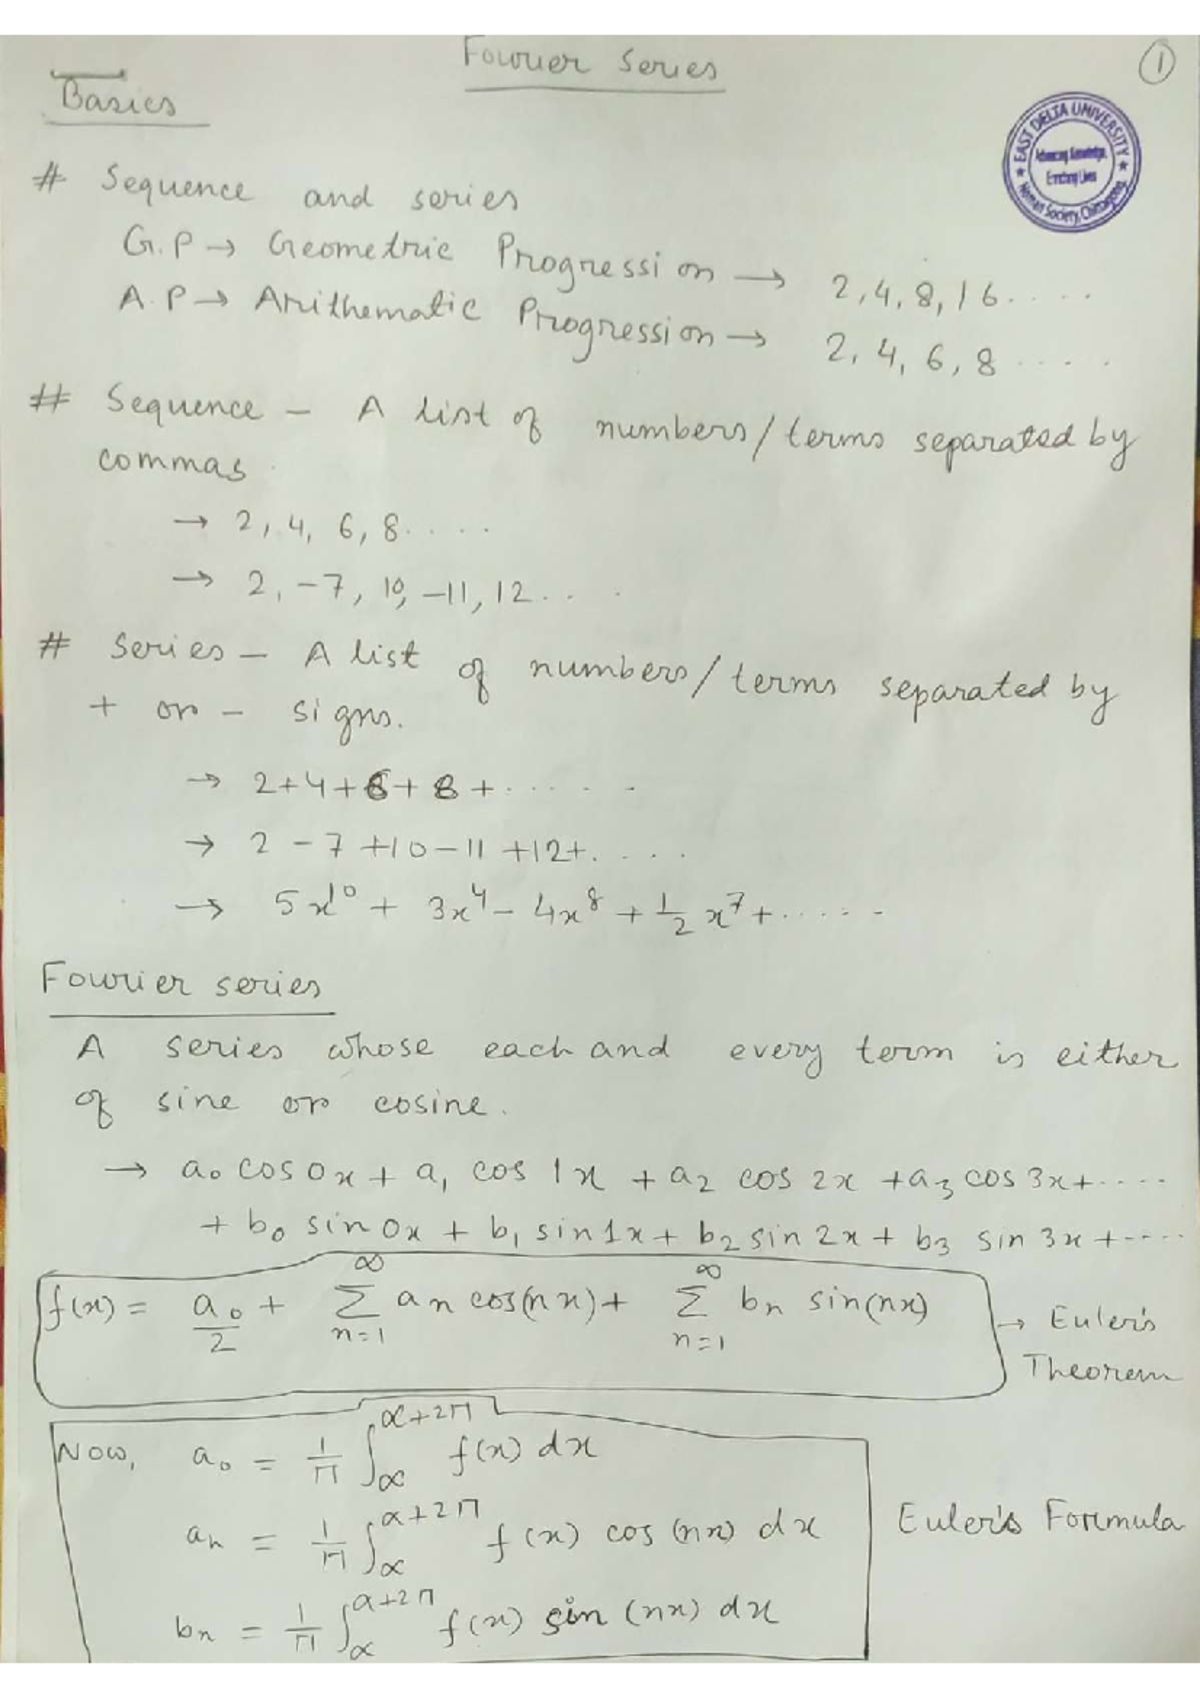 Fourier Series
①
Basics
EAST DELTA UNIVERSITY
Advancing Knowledge,
Enriching Lives
Noman Society, Chittagong
# Sequence and series
G.P → Geometric Progression → 2, 4, 8, 16.....
A.P → Arithematic Progression → 2, 4, 6, 8 .....
# Sequence – A list of numbers/terms separated by
commas.
→ 2, 4, 6, 8.....
→ 2, -7, 10, -11, 12....
# Series – A list of numbers/terms separated by
+ or – signs.
→ 2+4+6+8+......
→ 2 - 7 +10 - 11 +12+.....
→ 5x¹⁰ + 3x⁴ - 4x⁸ + 1/2 x⁷ + .....
Fourier series
A series whose each and every term is either
of sine or cosine.
→ a₀ cos 0x + a₁ cos 1x + a₂ cos 2x + a₃ cos 3x+....
+ b₀ sin 0x + b₁ sin 1x + b₂ sin 2x + b₃ sin 3x +.....
f(x) = a₀/2 + ∑_{n=1}^{∞} aₙ cos(nx) + ∑_{n=1}^{∞} bₙ sin(nx) → Euler's
Theorem
Now, a₀ = 1/π ∫_α^{α+2π} f(x) dx
aₙ = 1/π ∫_α^{α+2π} f(x) cos (nx) dx Euler's Formula
bₙ = 1/π ∫_α^{α+2π} f(x) sin (nx) dx